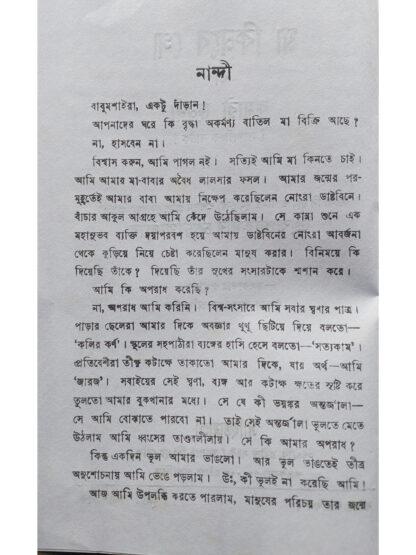 নান্দী
বাবুমশাইরা, একটু দাঁড়ান!
আপনাদের ঘরে কি বৃদ্ধা অকর্মণ্য বাতিল মা বিক্রি আছে?
না, হাসবেন না।
বিশ্বাস করুন, আমি পাগল নই। সত্যিই আমি মা কিনতে চাই।
আমি আমার মা-বাবার অবৈধ লালসার ফসল। আমার জন্মের পর-
মুহূর্তেই আমার বাবা আমায় নিক্ষেপ করেছিলেন নোংরা ডাষ্টবিনে।
বাঁচার আকুল আগ্রহে আমি কেঁদে উঠেছিলাম। সে কান্না শুনে এক
মহানুভব ব্যক্তি দয়াপরবশ হয়ে আমায় ডাষ্টবিনের নোংরা আবর্জনা
থেকে কুড়িয়ে নিয়ে চেষ্টা করেছিলেন মানুষ করার। বিনিময়ে কি
দিয়েছি তাঁকে? দিয়েছি তাঁর সুখের সংসারটাকে শ্মশান করে।
আমি কি অপরাধ করেছি?
না, অপরাধ আমি করিনি। বিশ্ব-সংসারে আমি সবার ঘৃণার পাত্র।
পাড়ার ছেলেরা আমার দিকে অবজ্ঞার থুথু ছিটিয়ে দিয়ে বলতো—
'কলির কর্ণ'। স্কুলের সহপাঠীরা ব্যঙ্গের হাসি হেসে বলতো—'সত্যকাম'।
প্রতিবেশীরা তীক্ষ্ণ কটাক্ষে তাকাতো আমার দিকে, যার অর্থ—আমি
'জারজ'। সবাইয়ের সেই ঘৃণা, ব্যঙ্গ আর কটাক্ষ ক্ষতের সৃষ্টি করে
তুলতো আমার বুকখানার মধ্যে। সে যে কী ভয়ঙ্কর অন্তর্জ্বালা—
সে আমি বোঝাতে পারবো না। তাই সেই অন্তর্জ্বালা ভুলতে মেতে
উঠলাম আমি ধ্বংসের তাণ্ডবলীলায়। সে কি আমার অপরাধ?
কিন্তু একদিন ভুল আমার ভাঙলো। আর ভুল ভাঙতেই তীব্র
অনুশোচনায় আমি ভেঙে পড়লাম। উঃ, কী ভুলই না করেছি আমি!
আজ আমি উপলব্ধি করতে পারলাম, মানুষের পরিচয় তার জন্মে